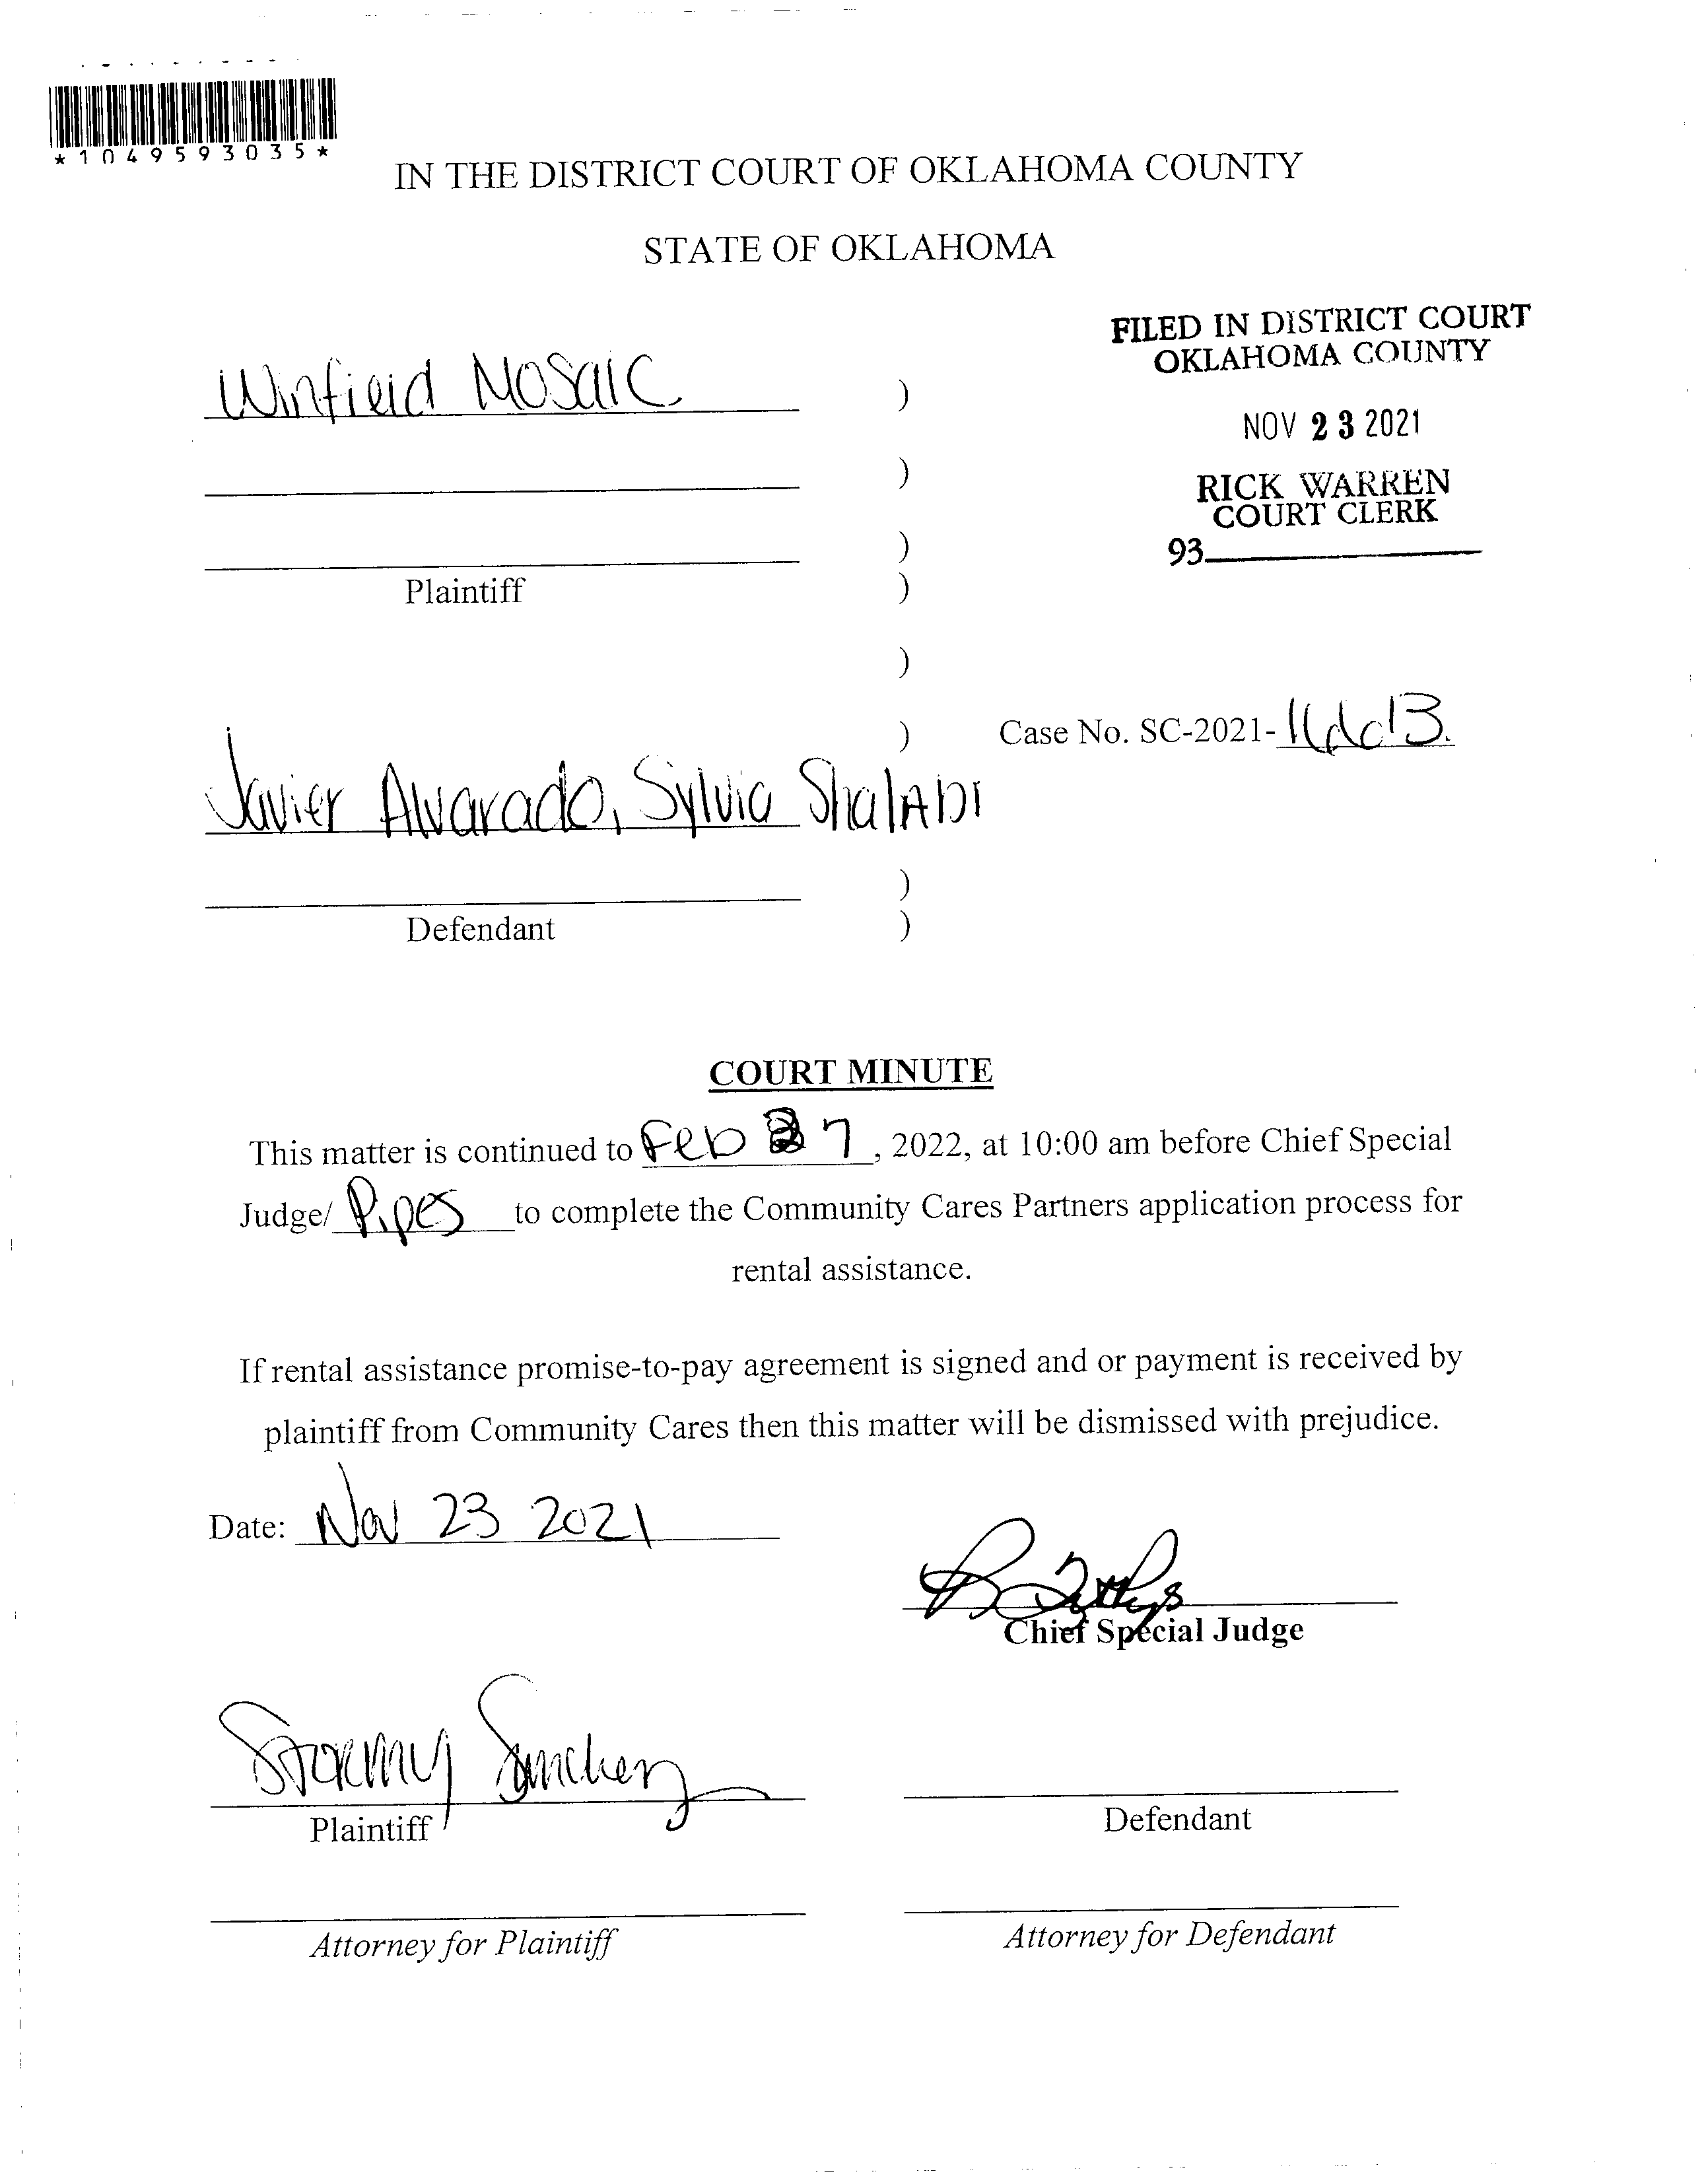 *1049593035*
IN THE DISTRICT COURT OF OKLAHOMA COUNTY
STATE OF OKLAHOMA
FILED IN DISTRICT COURT
OKLAHOMA COUNTY
NOV 23 2021
RICK WARREN
COURT CLERK
93
Winfield Mosaic )
)
)
Plaintiff )
)
) Case No. SC-2021-
Javier Alvarado, Sylvia Shalabi
)
Defendant )
COURT MINUTE
This matter is continued to Feb 7, 2022, at 10:00 am before Chief Special
Judge/ Pipes to complete the Community Cares Partners application process for
rental assistance.
If rental assistance promise-to-pay agreement is signed and or payment is received by
plaintiff from Community Cares then this matter will be dismissed with prejudice.
Date: Nov 23 2021
Chief Special Judge
Stormy Sanchez
Plaintiff
Defendant
Attorney for Plaintiff
Attorney for Defendant